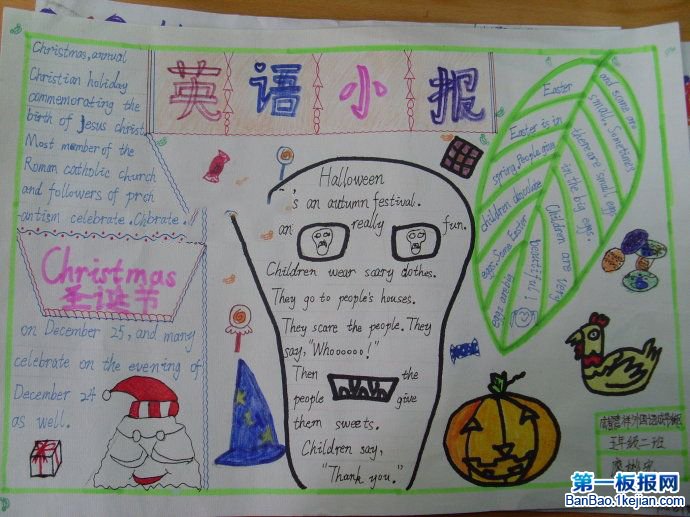 英语小报
Christmas, annual
Christian holiday
commemorating the
birth of Jesus christ.
Most member of the
Roman catholic church
and followers of
antism celebrate.
Christmas
圣诞节
on December 25, and many
celebrate on the evening of
December 24
as well.
Halloween
's an autumn festival.
an really fun.
Children wear scary clothes.
They go to people's houses.
They scare the people. They
say, "Whoooooo!"
Then the
people give
them sweets.
Children say,
"Thank you."
Easter
Easter is in
spring. People give
children chocolate
eggs. Some Easter
eggs are big
and some are
small. Sometimes
there are small egg
in the big eggs.
Children are very
beautiful!
五年级二班
第一板报网
BanBao.1kejian.com